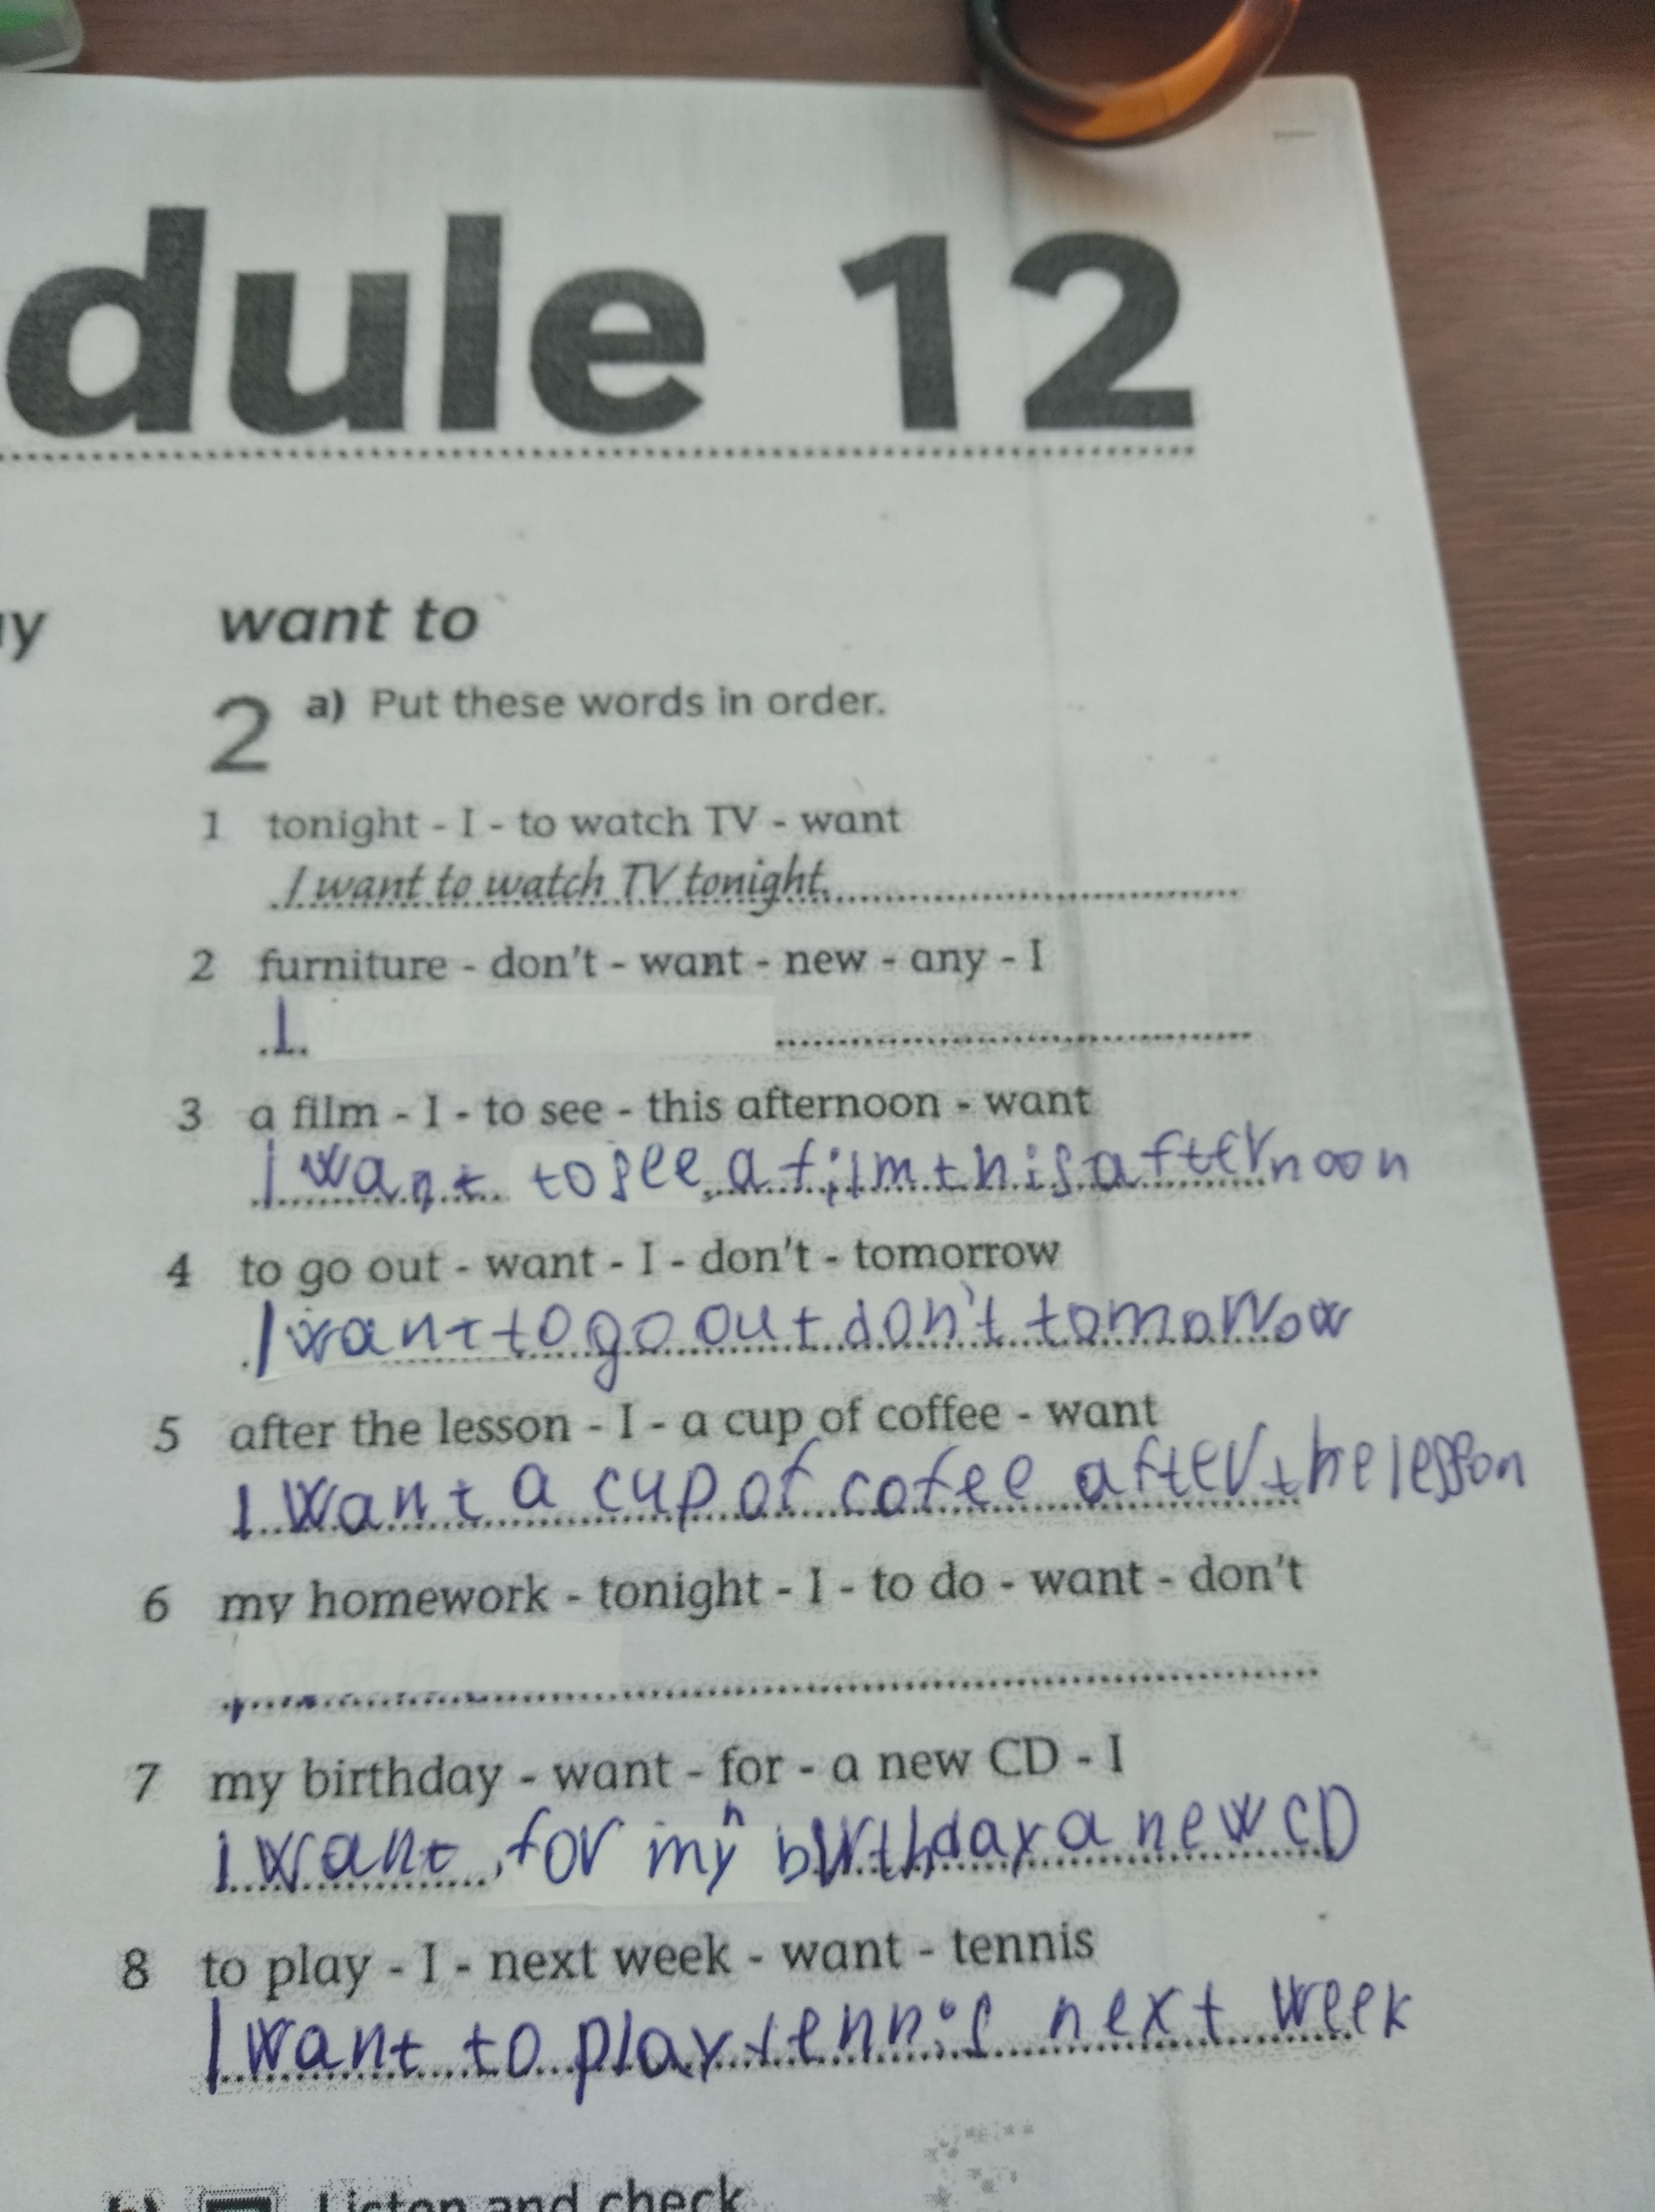 dule 12
ay
want to
2 a) Put these words in order.
1 tonight - I - to watch TV - want
I want to watch TV tonight.
2 furniture - don't - want - new - any - I
I
3 a film - I - to see - this afternoon - want
I want to see a film this afternoon
4 to go out - want - I - don't - tomorrow
I want to go out don't tomorrow
5 after the lesson - I - a cup of coffee - want
I want a cup of cofee after the lesson
6 my homework - tonight - I - to do - want - don't
7 my birthday - want - for - a new CD - I
I want for my birthday a new CD
8 to play - I - next week - want - tennis
I want to play tennis next week
b) Listen and check